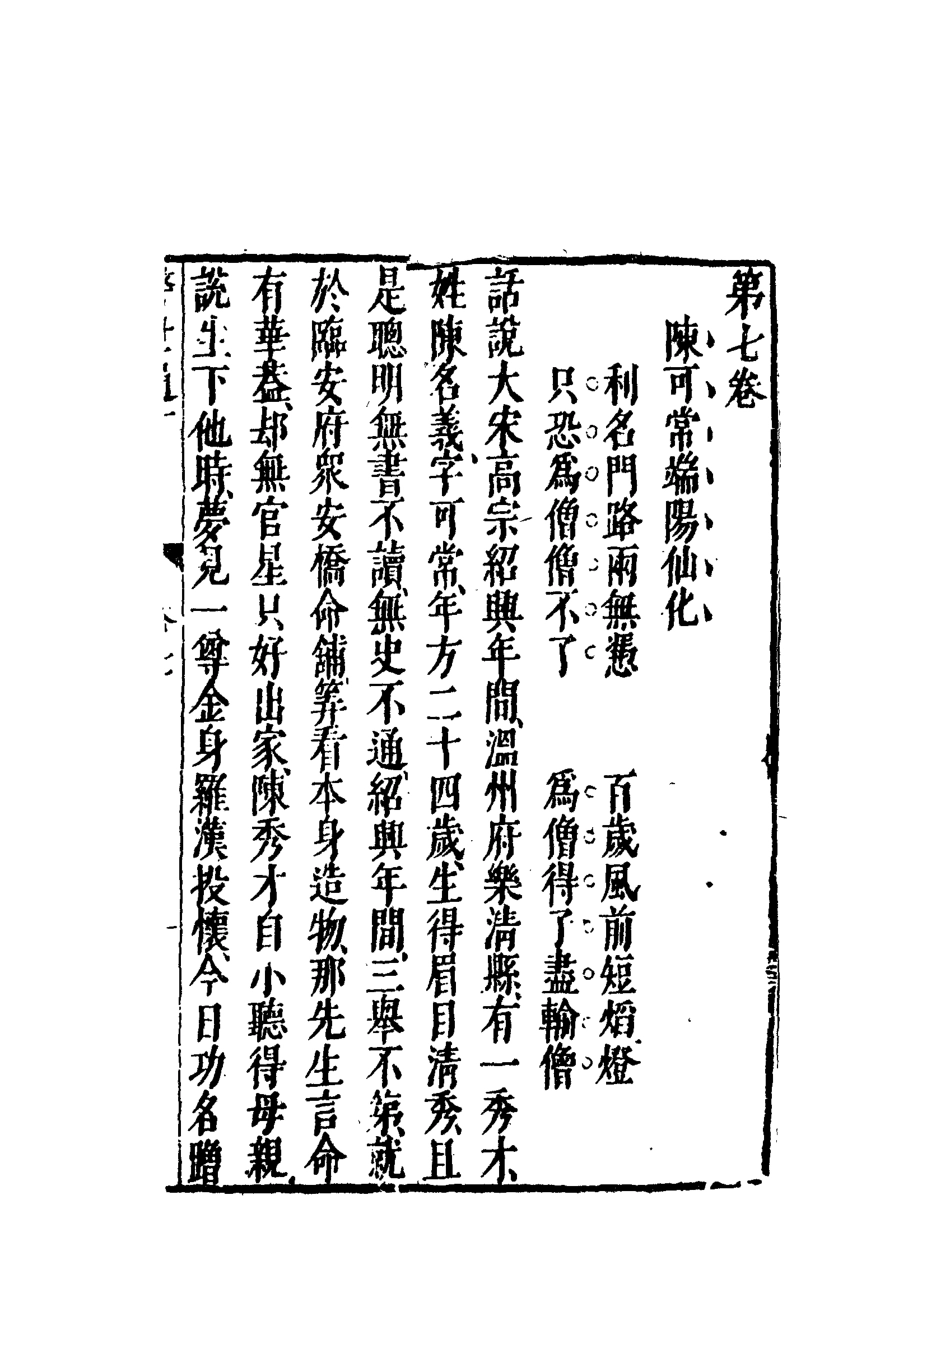 第七卷
陳可常端陽仙化
利名門路兩無憑　百歲風前短焰燈
只恐爲僧僧不了　爲僧得了盡輸僧
話說大宋高宗紹興年間、溫州府樂淸縣、有一秀才
姓陳名義、字可常、年方二十四歲、生得眉目淸秀、且
是聰明、無書不讀、無史不通、紹興年間、三舉不第、就
於臨安府衆安橋命鋪、筭看本身造物、那先生言命
有華葢、却無官星、只好出家、陳秀才自小聽得母親
說、生下他時、夢見一尊金身羅漢投懷、今日功名蹭